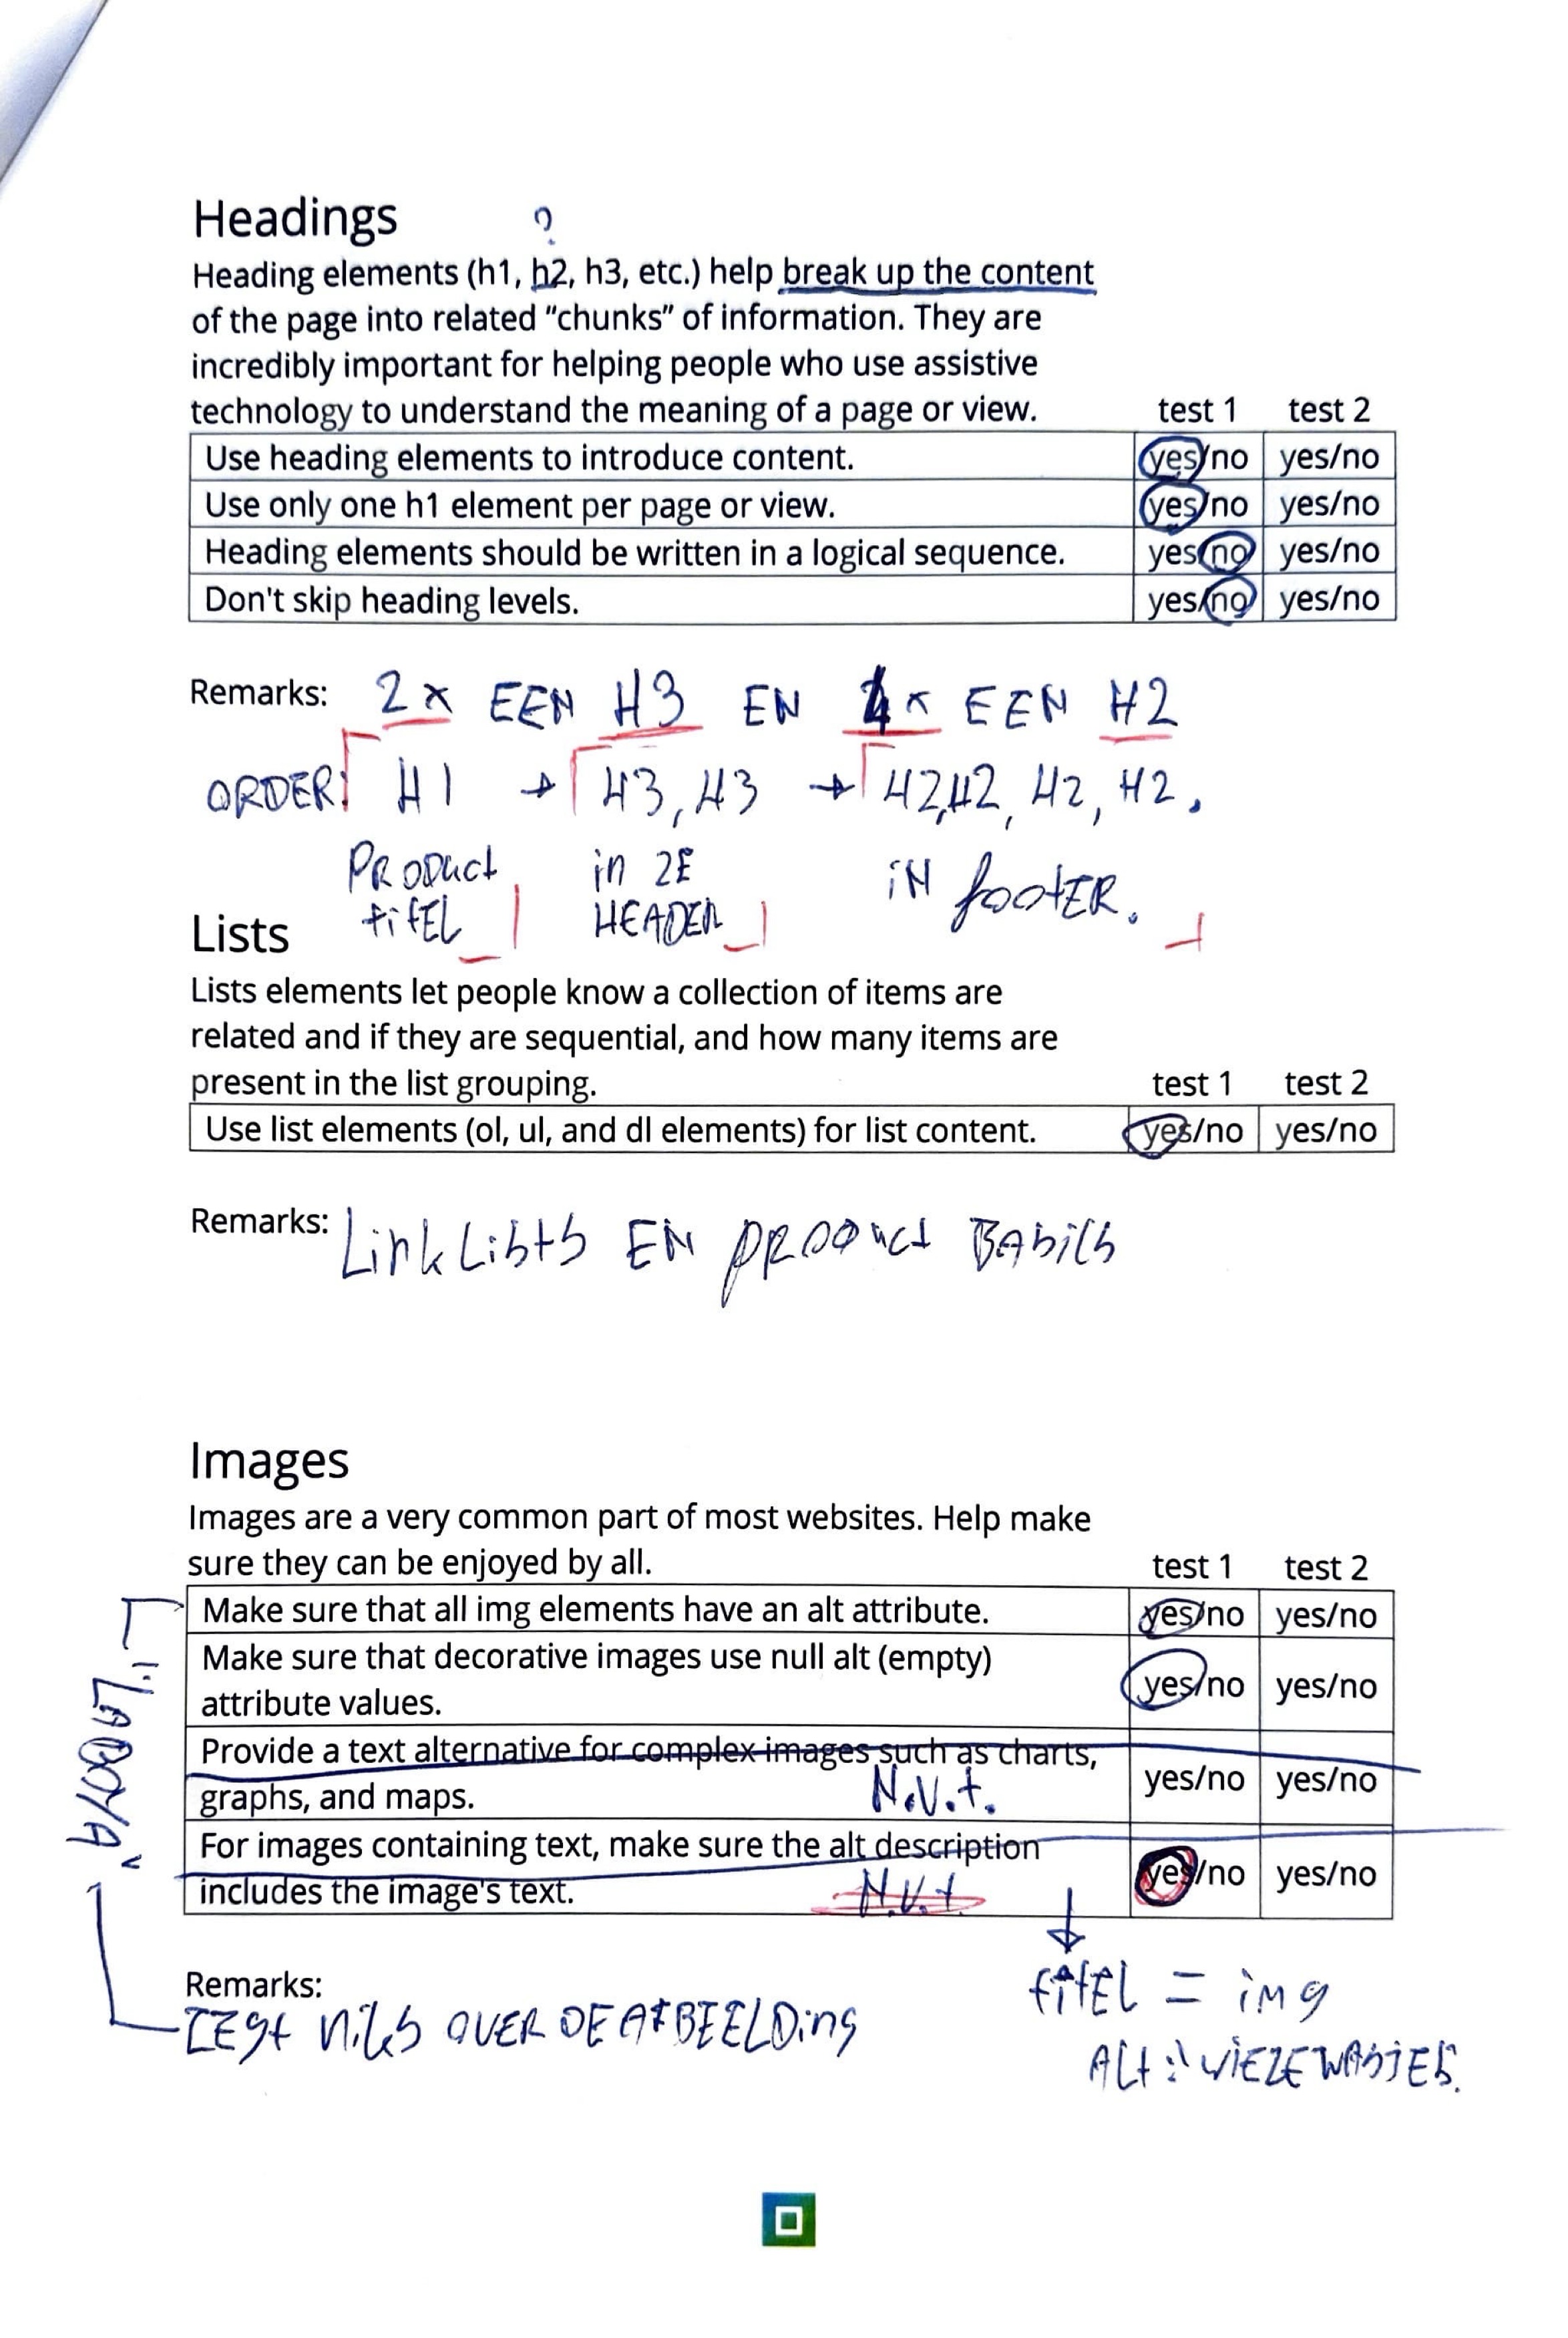 Headings
?
Heading elements (h1, h2, h3, etc.) help break up the content
of the page into related "chunks" of information. They are
incredibly important for helping people who use assistive
technology to understand the meaning of a page or view. test 1 test 2
Use heading elements to introduce content. yes/no yes/no
Use only one h1 element per page or view. yes/no yes/no
Heading elements should be written in a logical sequence. yes/no yes/no
Don't skip heading levels. yes/no yes/no
Remarks: 2x EEN H3 EN 4x EEN H2
ORDER: H1 → H3, H3 → H2, H2, H2, H2.
PRODuct in 2E iN footER.
titEL HEADER
Lists
Lists elements let people know a collection of items are
related and if they are sequential, and how many items are
present in the list grouping. test 1 test 2
Use list elements (ol, ul, and dl elements) for list content. yes/no yes/no
Remarks: Link Lists EN PRODuct BAsics
Images
Images are a very common part of most websites. Help make
sure they can be enjoyed by all. test 1 test 2
Make sure that all img elements have an alt attribute. yes/no yes/no
Make sure that decorative images use null alt (empty)
attribute values. yes/no yes/no
Provide a text alternative for complex images such as charts,
graphs, and maps. N.v.t. yes/no yes/no
For images containing text, make sure the alt description
includes the image's text. N.v.t. yes/no yes/no
"LABOYA"
Remarks:
ZEgt niks OVER DE AFBEELDing
titEl = img
Alt: "VIEZEWASJES.